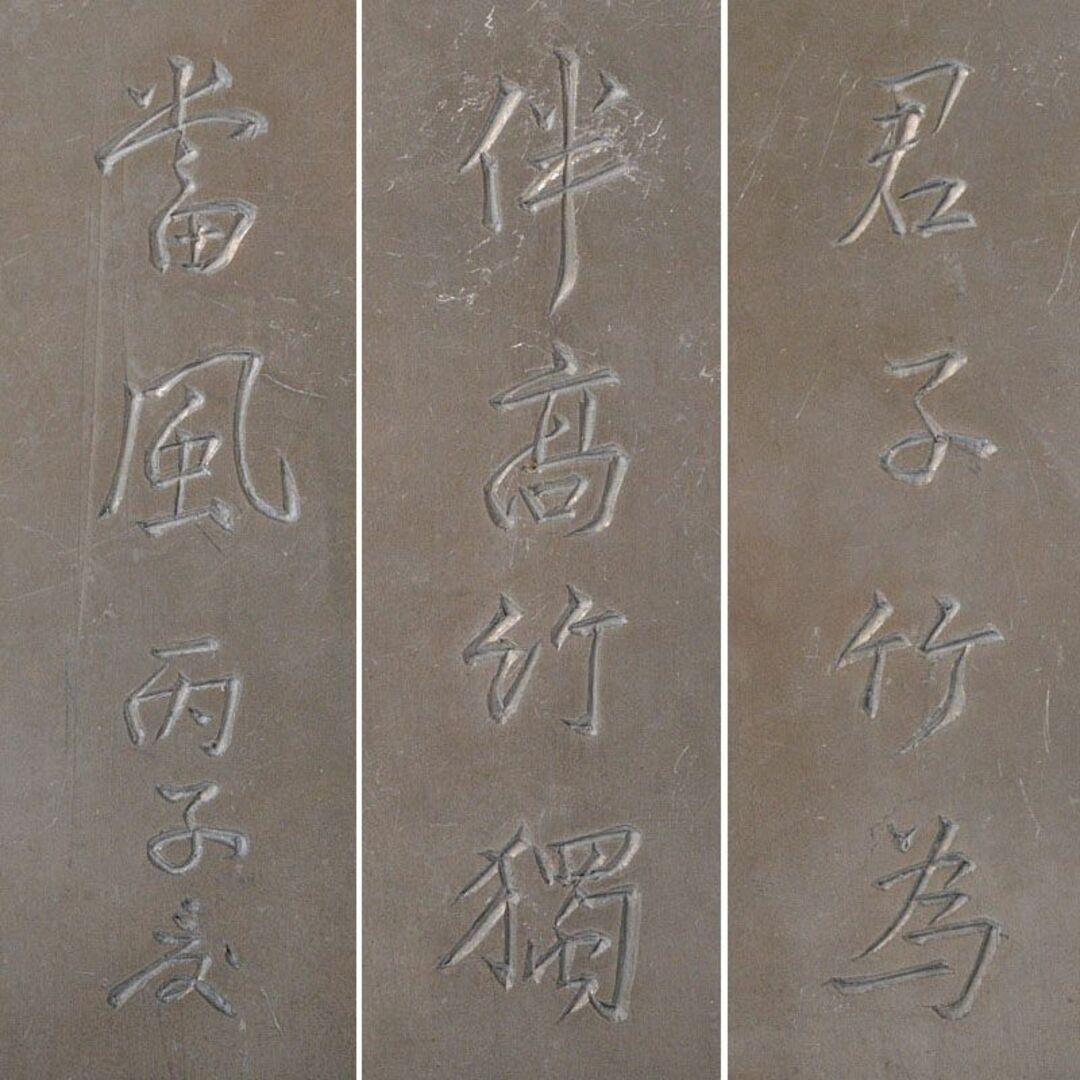 君子竹為
伴高竹獨
當風丙子夏